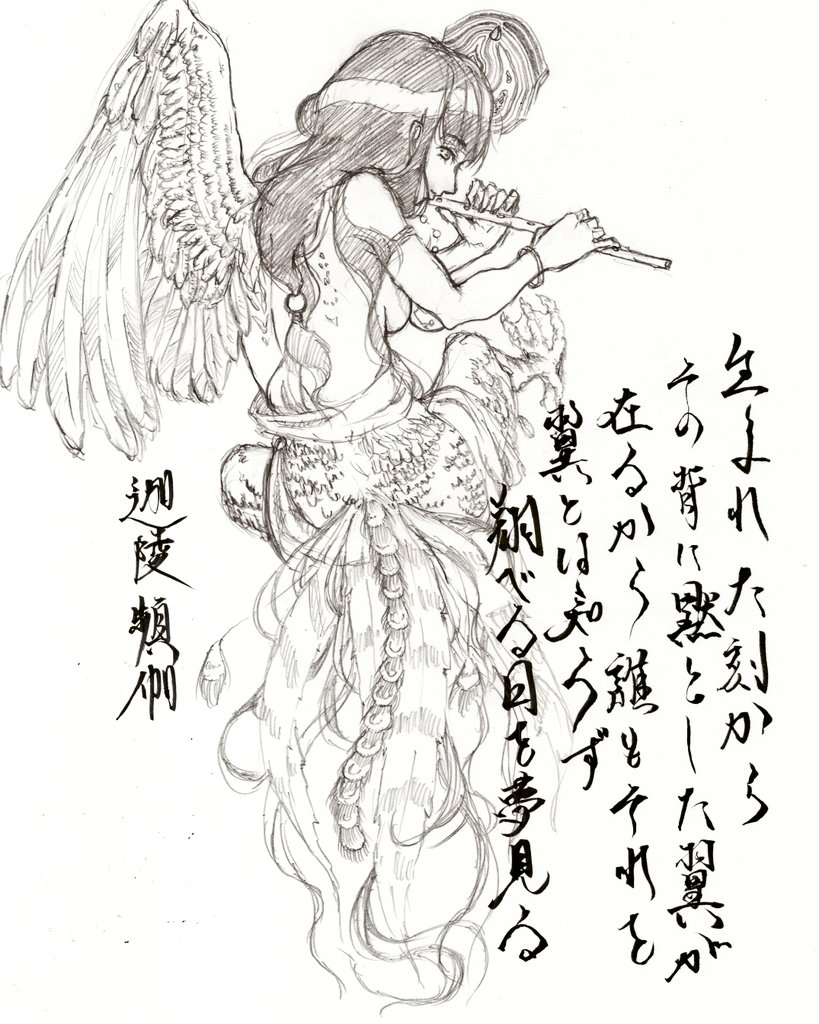 生まれた刻から
その背に黙とした翼が
在るから誰もそれを
翼とは知らず
翔べる日を夢見る
迦陵頻伽